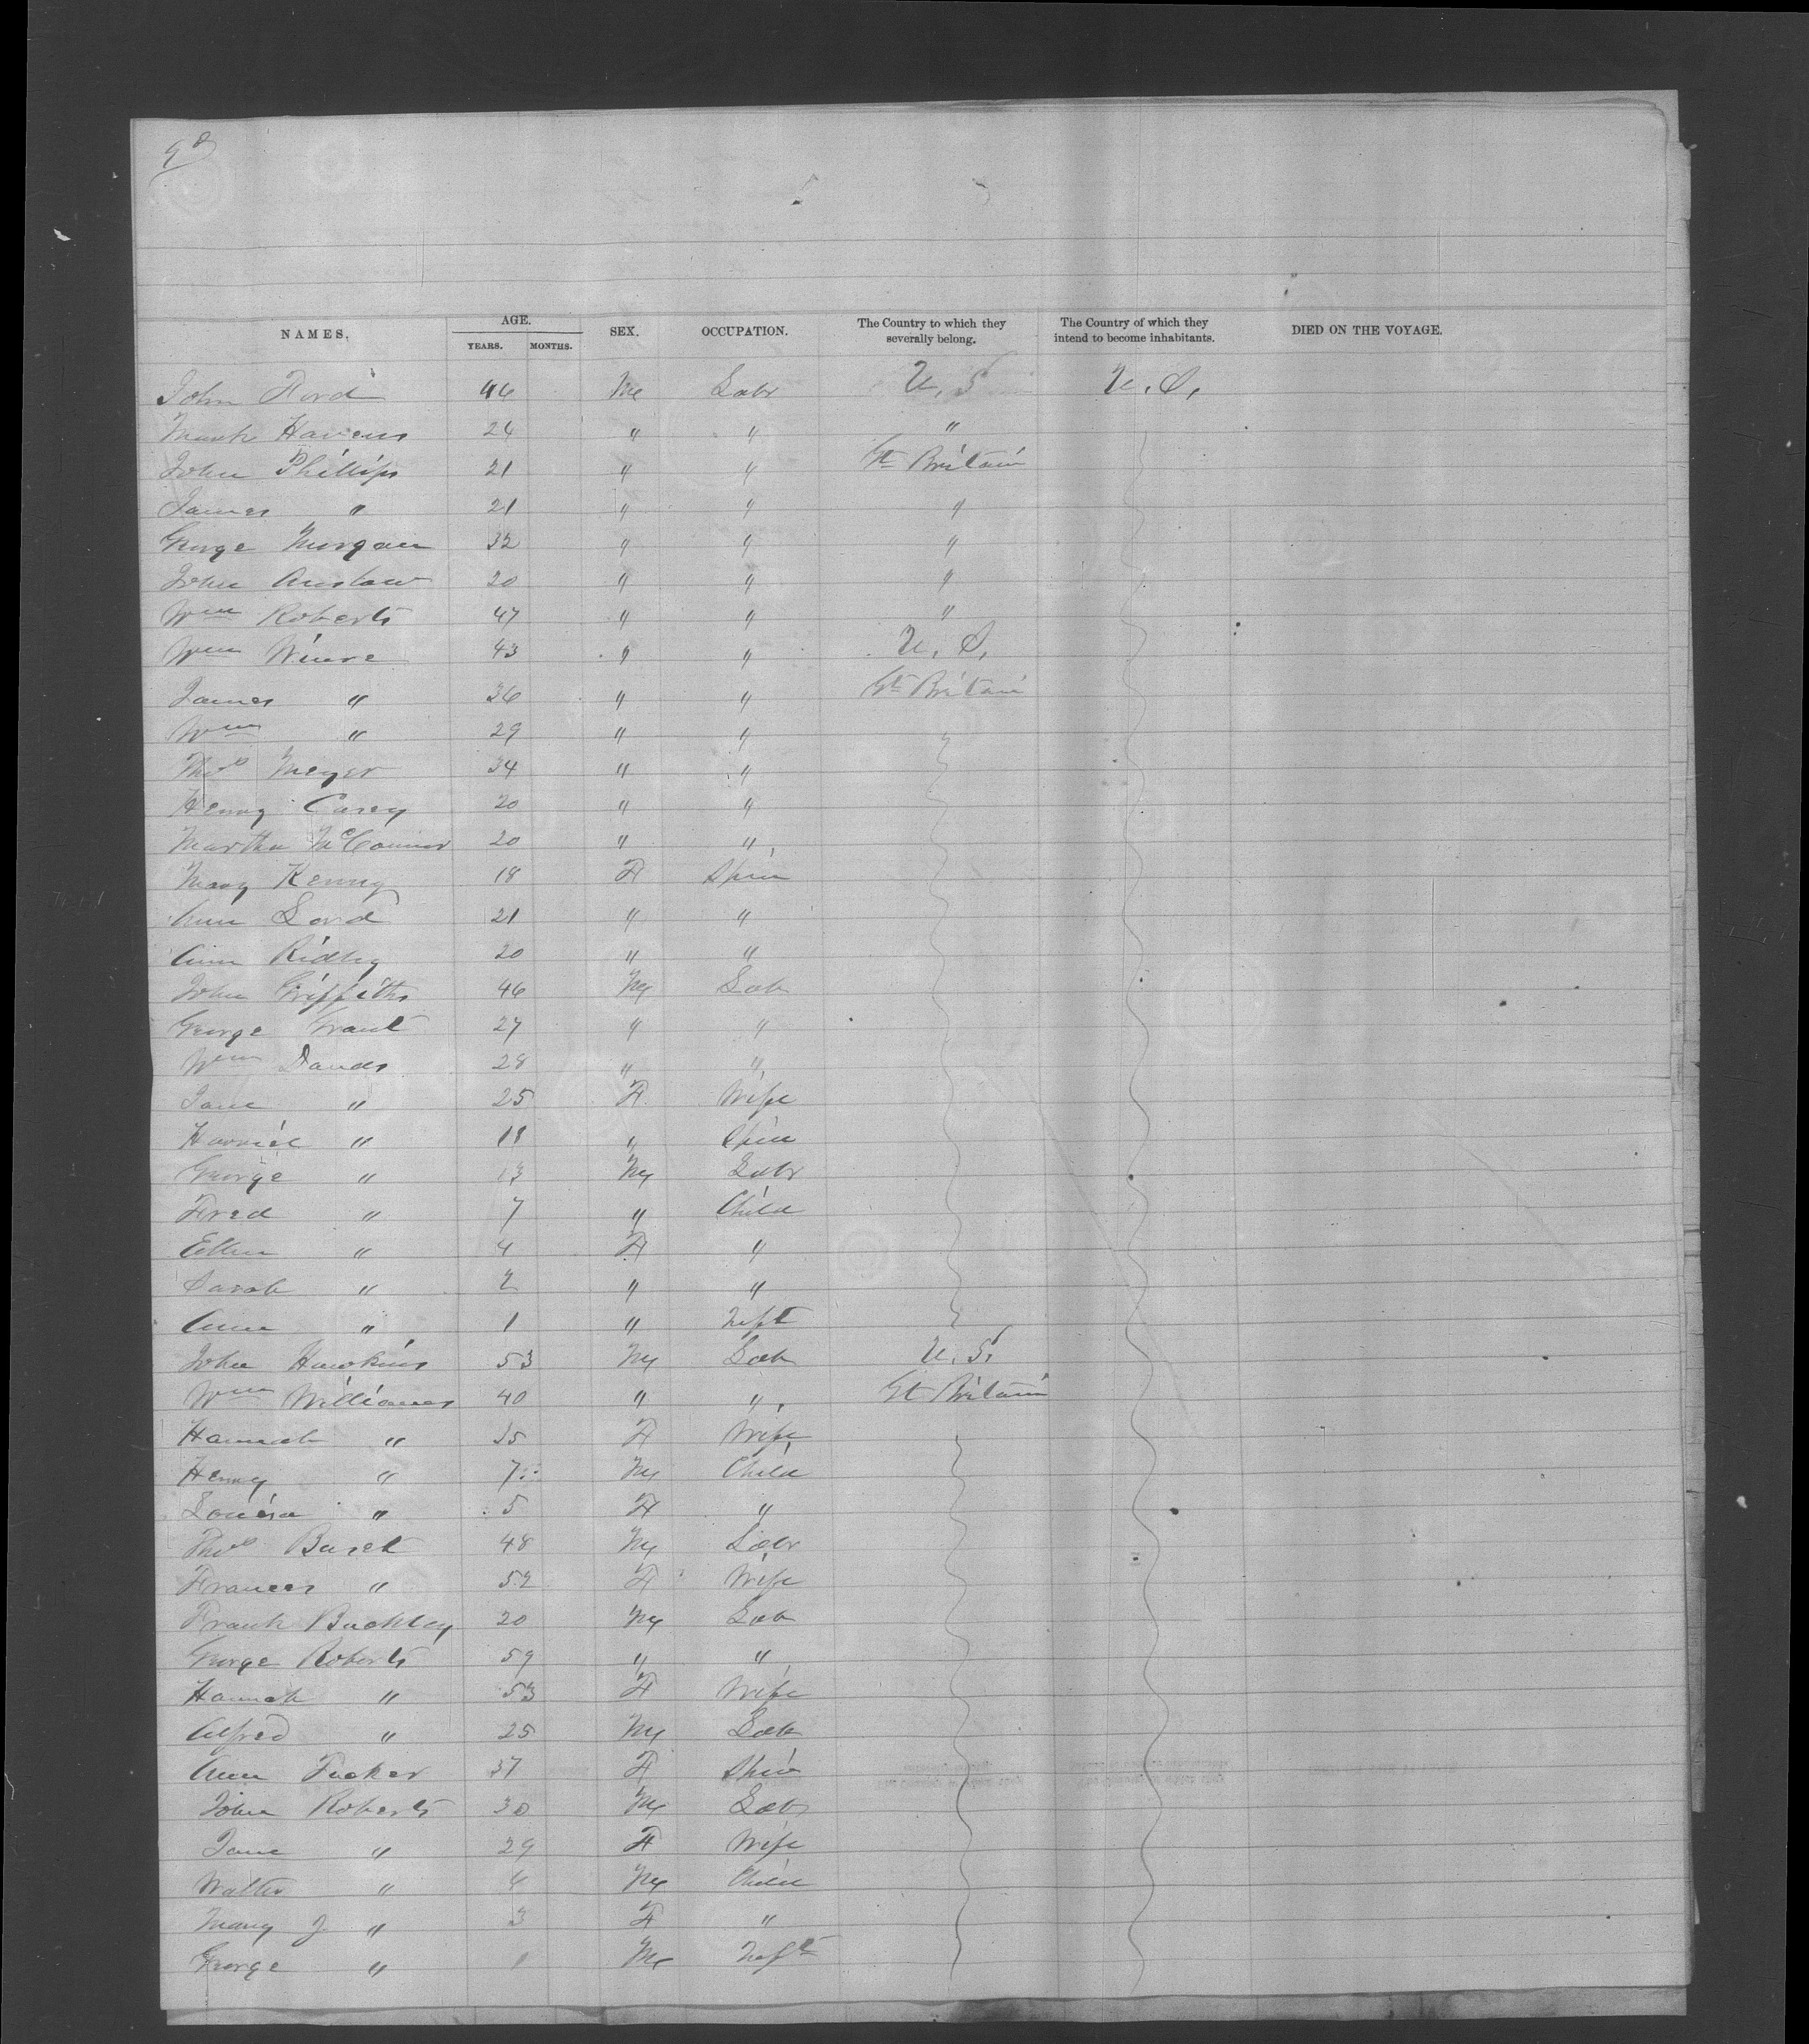 NAMES. AGE. YEARS. MONTHS. SEX. OCCUPATION. The Country to which they severally belong. The Country of which they intend to become inhabitants. DIED ON THE VOYAGE.
John Ford 46 M Labr U. S U. S.
Mark Havens 24 " " "
John Phillips 21 " " Gt Britain
James " 21 " " "
George Morgan 32 " " "
John Anstaw 20 " " "
Wm Roberts 47 " " "
Wm Winre 43 " " U. S.
James " 36 " " Gt Britain
Wm " 29 " "
Thos Meyer 34 " "
Henry Carey 20 " "
Martha McConnor 20 " "
Mary Kenny 18 F Spin
Ann Lord 21 " "
Ann Ridley 20 " "
John Griffiths 46 M Lab
George Grant 27 " "
Wm Dandes 28 " "
Jane " 25 F Wife
Harriet " 18 " Spin
George " 13 M Labr
Fred " 7 " Child
Ellen " 4 F "
Sarah " 2 " "
Ann " 1 " Inft
John Hawkins 53 M Lab U. S.
Wm Williams 40 " " Gt Britain
Hannah " 35 F Wife
Henry " 7 M Child
Louisa " 5 F "
Thos Buret 48 M Labr
Frances " 52 F Wife
Frank Buckley 20 M Lab
George Roberts 59 " "
Hannah " 53 F Wife
Alfred " 25 M Lab
Ann Tucker 37 F Spin
John Roberts 30 M Lab
Jane " 29 F Wife
Walter " 4 M Child
Mary J. " 3 F "
George " 1 M Inft